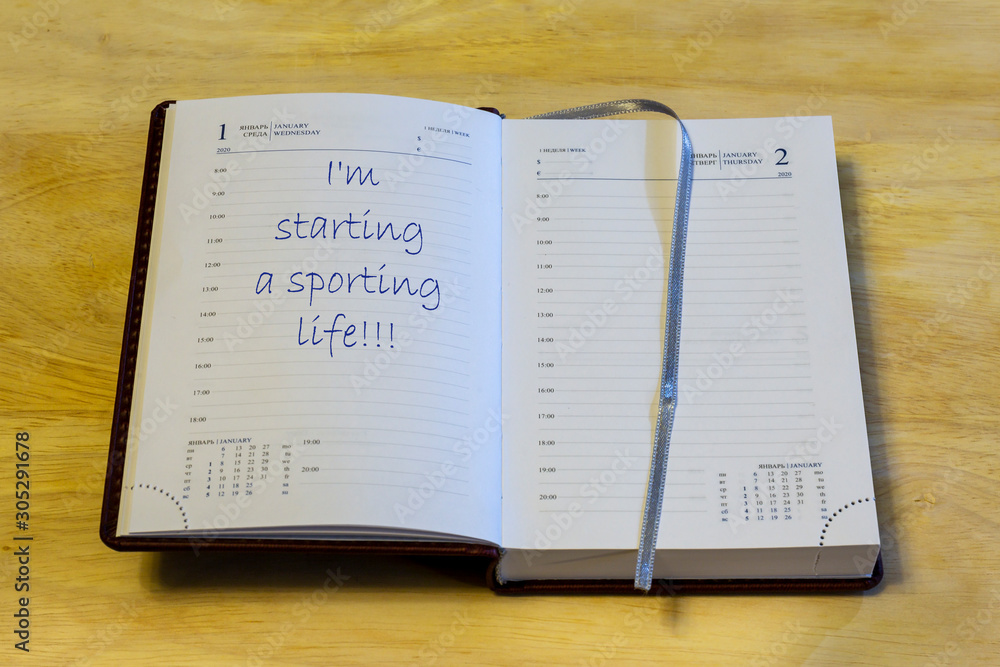 1 ЯНВАРЬ | JANUARY
СРЕДА | WEDNESDAY
2020
1 НЕДЕЛЯ | WEEK
$
€
I'm
starting
a sporting
life!!!
8:00
9:00
10:00
11:00
12:00
13:00
14:00
15:00
16:00
17:00
18:00
19:00
20:00
ЯНВАРЬ | JANUARY
пн 6 13 20 27 mo
вт 7 14 21 28 tu
ср 1 8 15 22 29 we
чт 2 9 16 23 30 th
пт 3 10 17 24 31 fr
сб 4 11 18 25 sa
вс 5 12 19 26 su
1 НЕДЕЛЯ | WEEK
$
€
ЯНВАРЬ | JANUARY 2
ТВЕРГ | THURSDAY
2020
8:00
9:00
10:00
11:00
12:00
13:00
14:00
15:00
16:00
17:00
18:00
19:00
20:00
ЯНВАРЬ | JANUARY
пн 6 13 20 27 mo
вт 7 14 21 28 tu
ср 1 8 15 22 29 we
чт 2 9 16 23 30 th
пт 3 10 17 24 31 fr
сб 4 11 18 25 sa
вс 5 12 19 26 su
Adobe Stock | #305291678